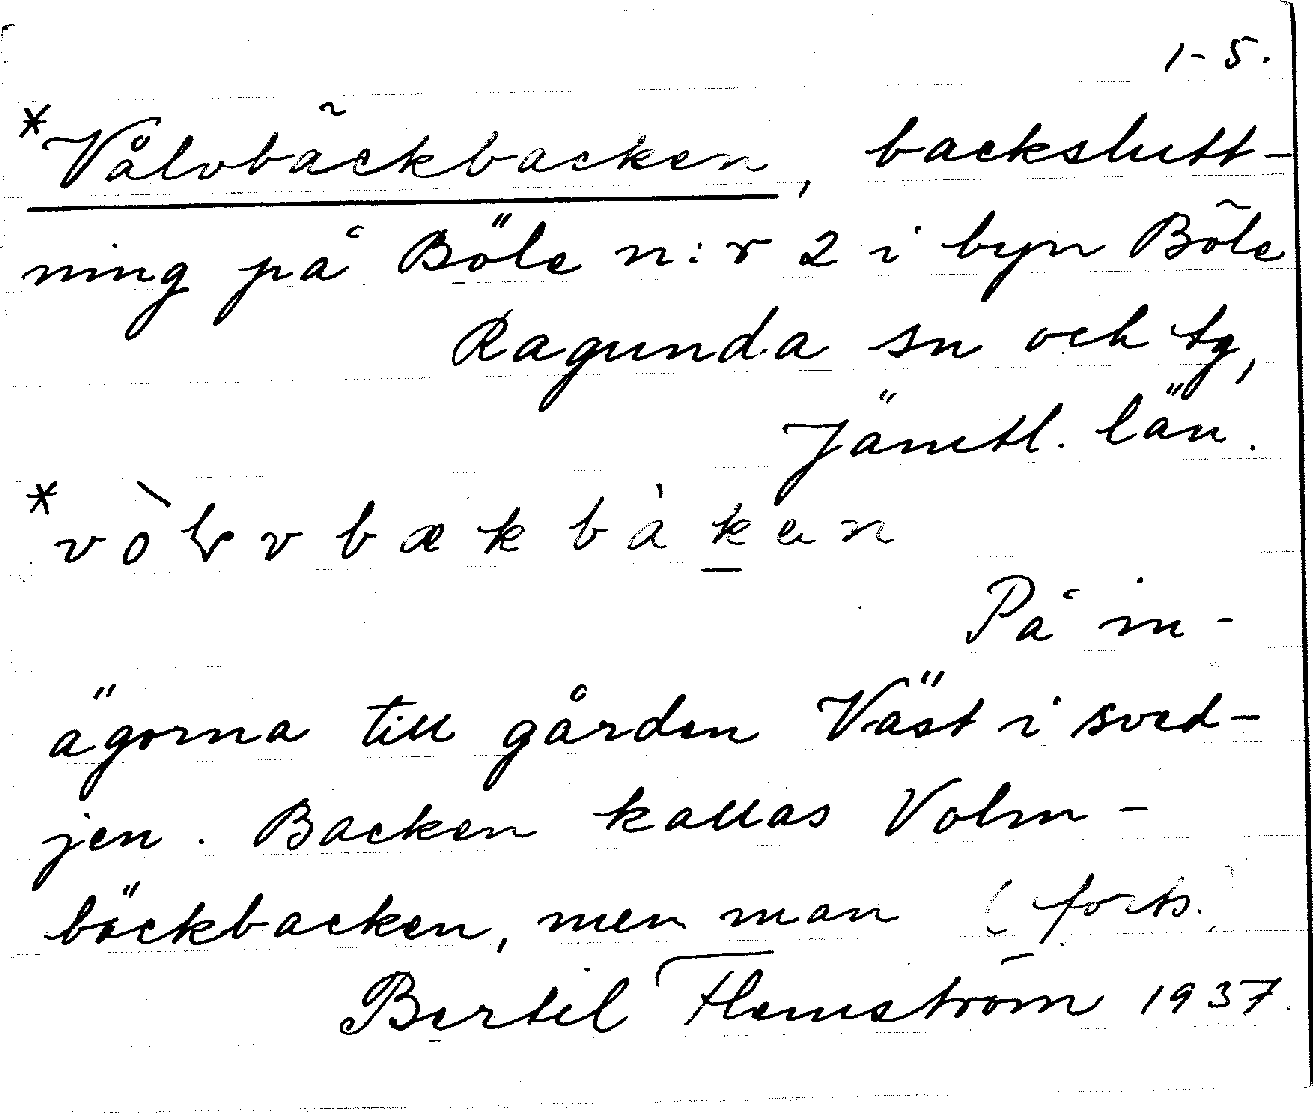 1-5.
*Vålvbäckbacken, backslutt-
ning på Böle n:r 2 i byn Böle
Ragunda sn och tg,
Jämtl. län.
På in-
ägorna till gården Väst i sved-
jen. Backen kallas Volm-
bäckbacken, men man (forts.)
Bertil Flemström 1937.